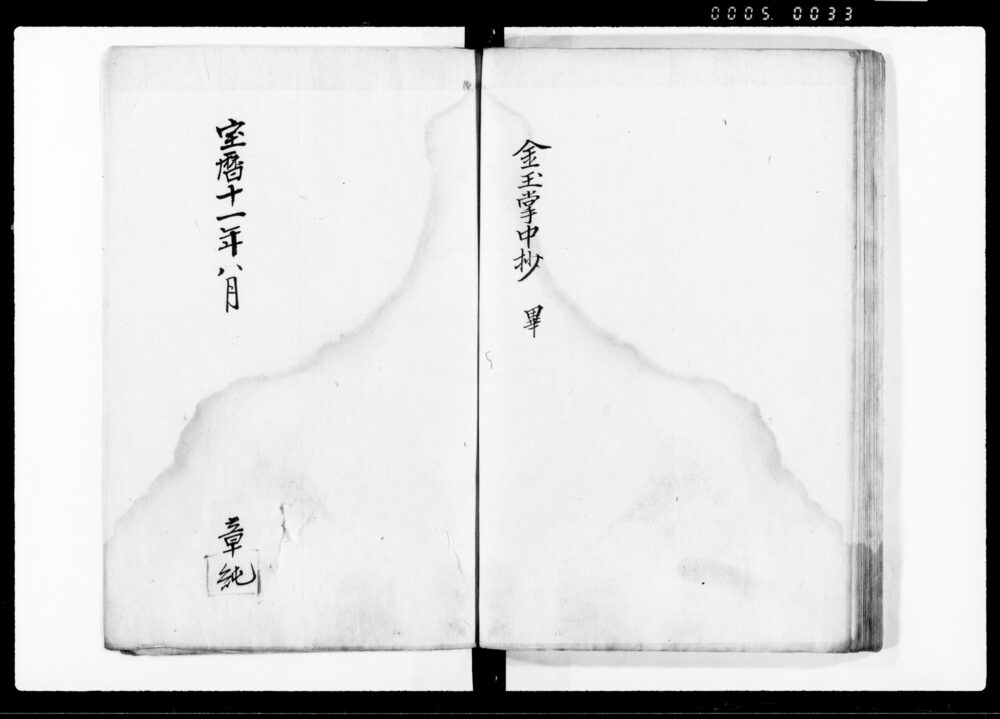 0005. 0033
金玉掌中抄 畢
宝暦十一年八月
章純